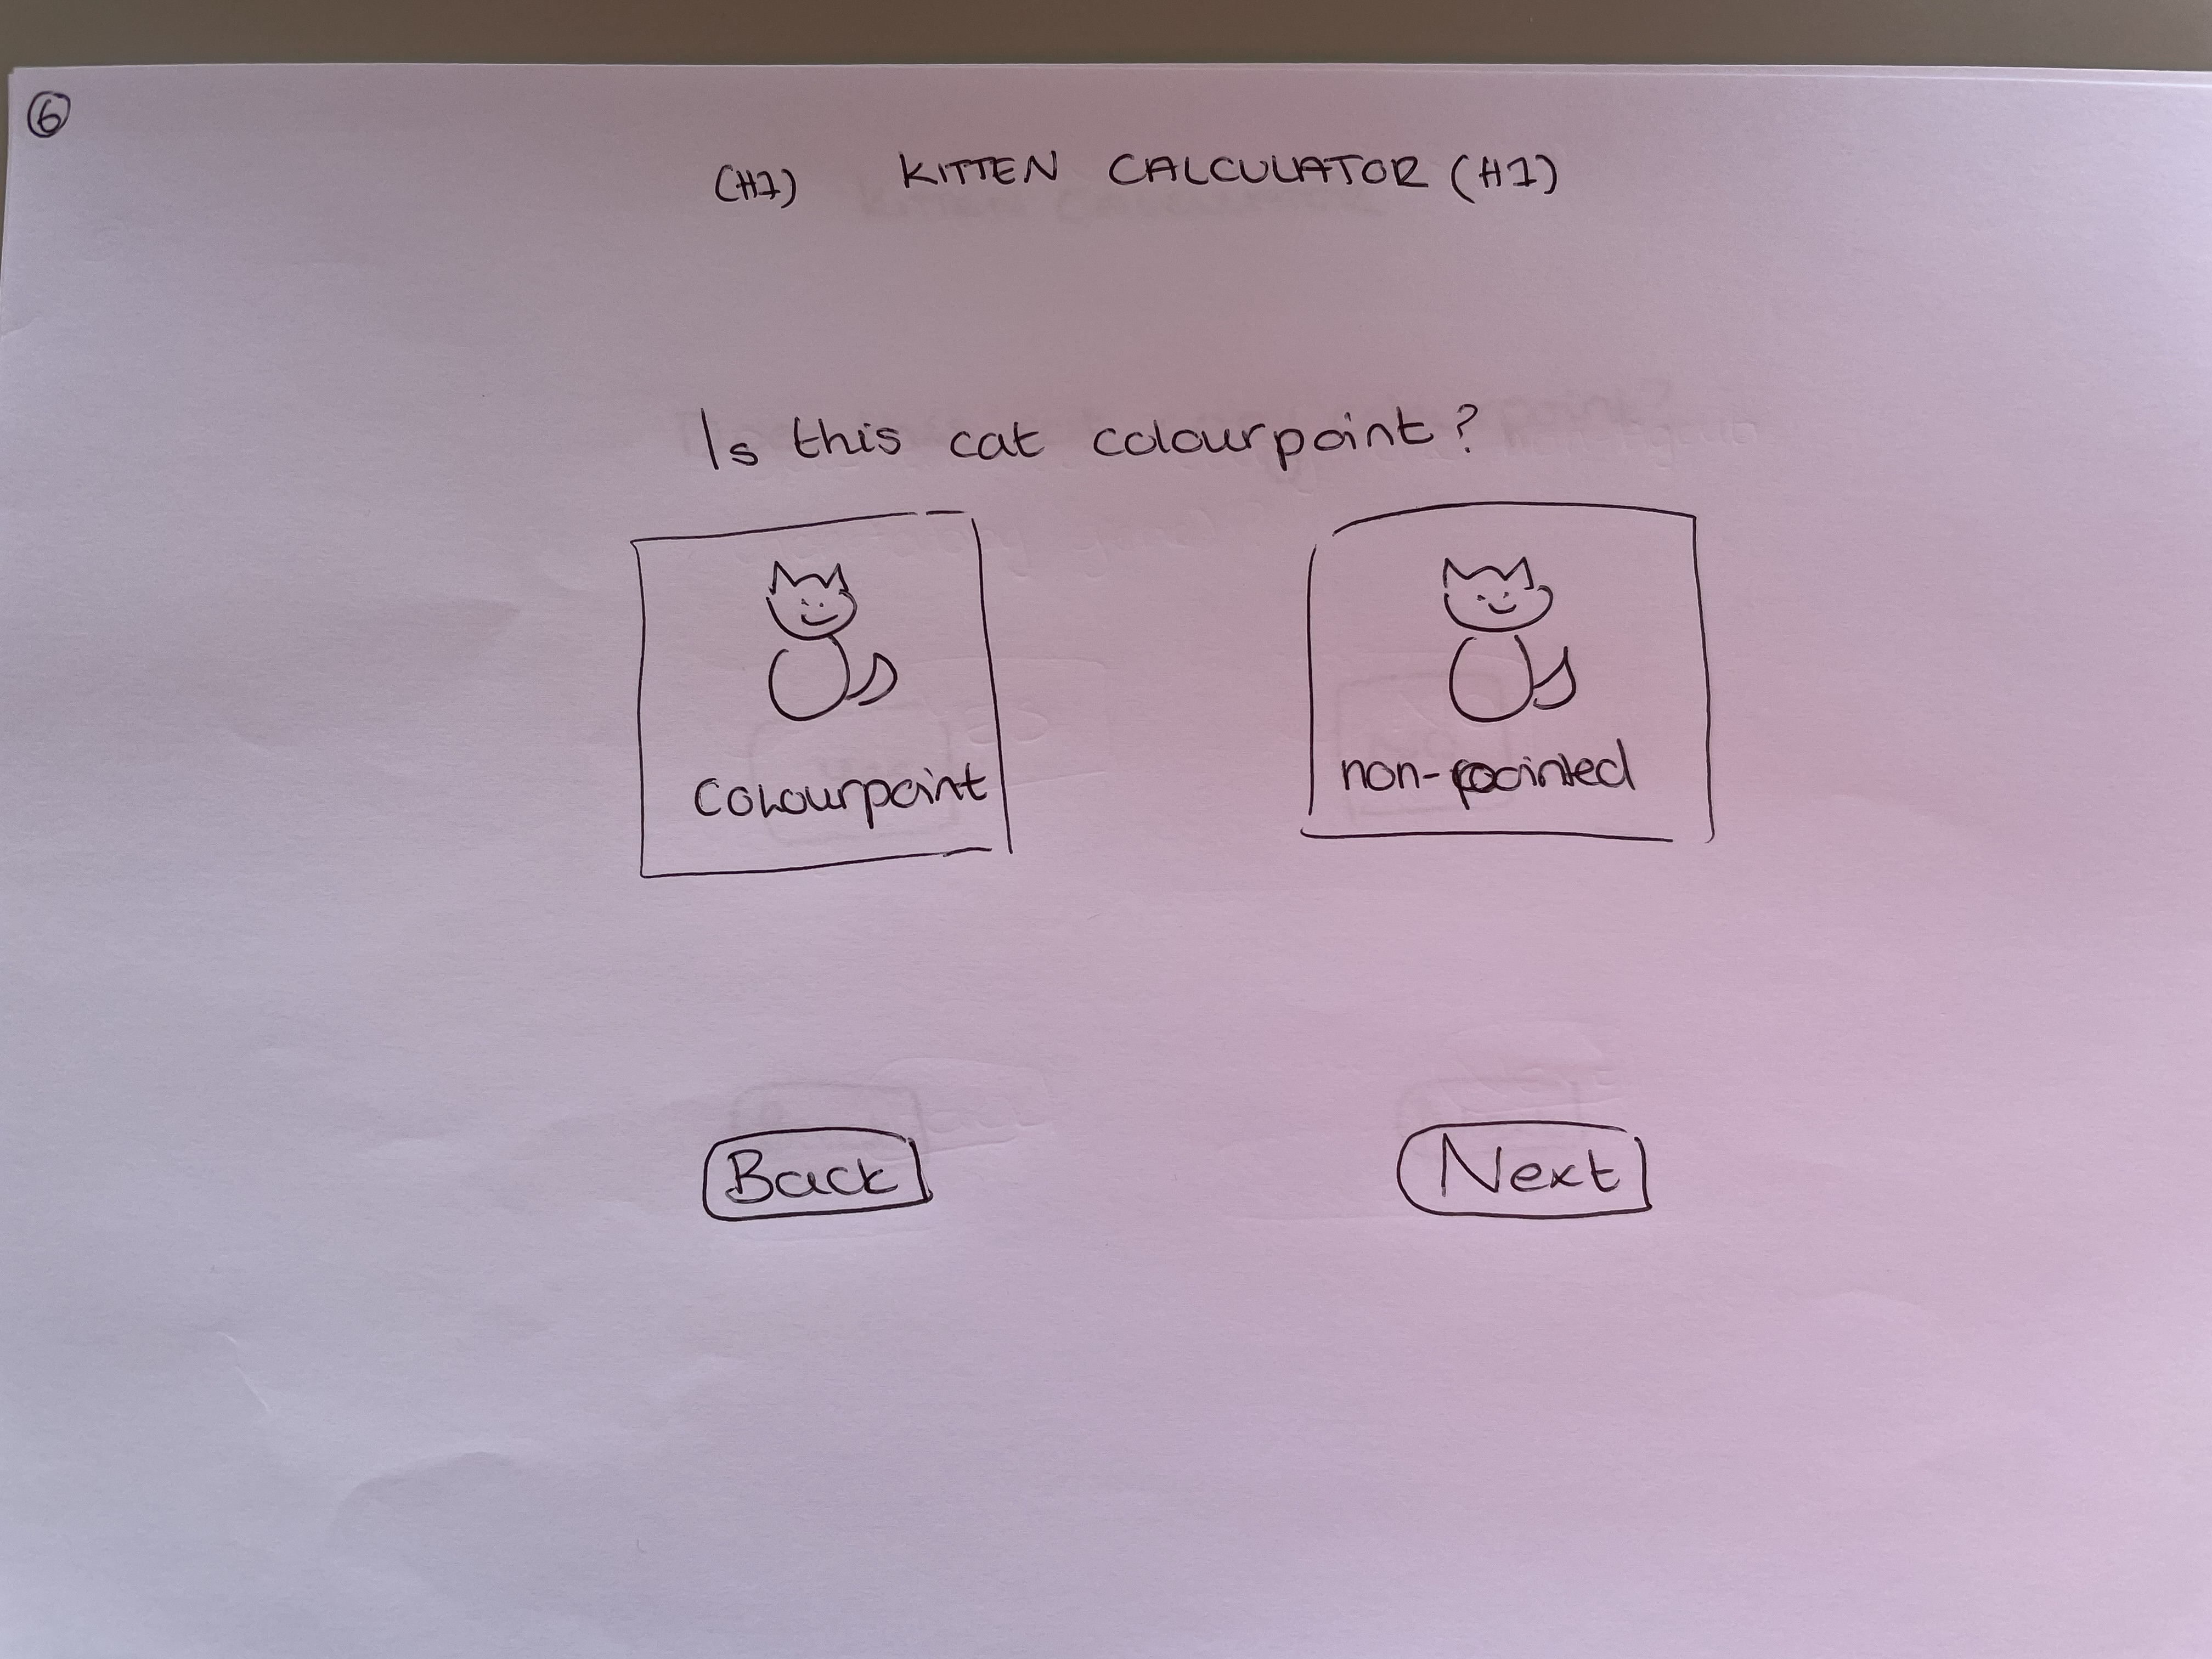 6
(H1) KITTEN CALCULATOR (H1)
Is this cat colourpoint?
Colourpoint
non-pointed
Back
Next